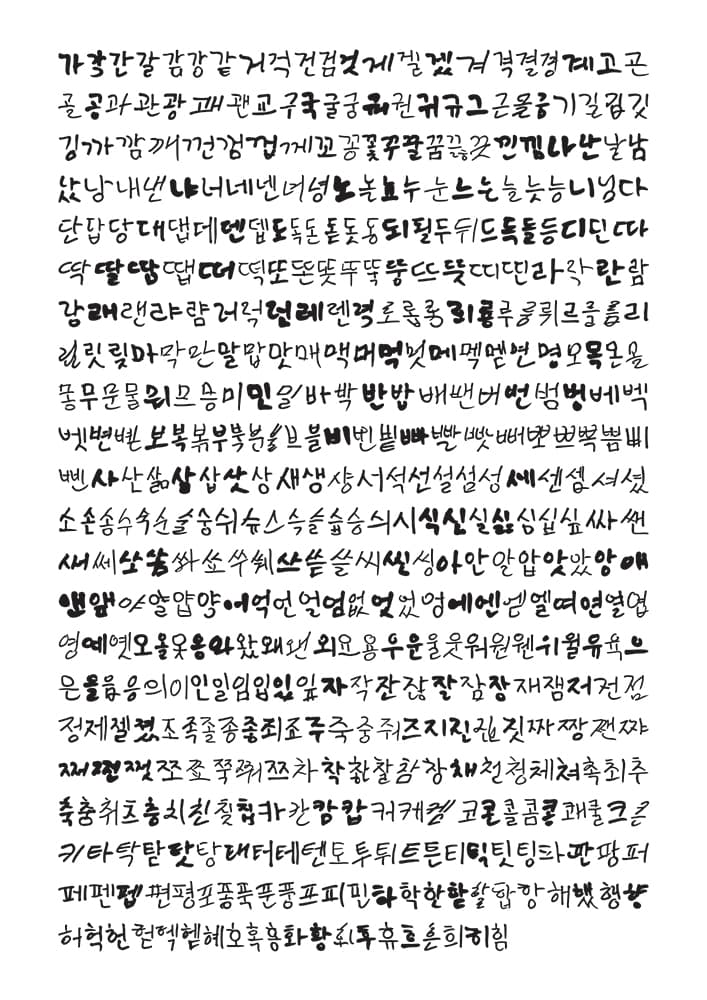 가각간갈감강같거걱건검것게겔겠겨격결경계고곤
골공과관광괘괜교구국굴궁궈권귀규그근믈긍기길김깃
깅까깜깨껀껌껍께꼬꽁꽃꾸꿀꿈끊끗낀낌나난날남
났낭내낸냐너네넨녀녕노논뇨누눈느는늘능늦니님다
단답당대댑데덴뎁도독돈돋돗동되될두뒤드득들등디딘따
딱딸땀땝떠떡또똔똣뚜뚝뚱뜨뜻띠띤라락란람
랑래랜랴럄러럭런레렌력로롭롱뢰룡루룽뤼르를름리
릴릿링마막만말맙맛매맥머먹멋메멕멘면명모목몬몰
몽무문물뮈므믕미민밀바박반밥배밴버번범벙베벡
벳변볜보복볶부북분불브블비빈빌빠빨빳뻐뽀쁘뼉쁨삐
삔사산삶살삽삿상새생샹서석선설섬성세센셈셔셨
소손송수숙순술숭쉬슈스슥슬습승싀시식신실싫심십싶싸쌘
쌔쎄쏘쏨쏴쑈쑤쒜쓰쓷쓸씨씬씽아안알압앗았앙애
앤앨야얄얍양어억언얼엄없엇었엉에엔엠엘여연열엽
영예옛오올옷옹와왔왜왠외요용우운울웃워원웬위윌유육으
은을읍응의이인일임입있잎자작잔잖잘잠장재잼저전점
정제젤졌조족졸종좋죄죠주죽중줘즈지진짐짓짜짱짼쨔
째쩐쩟쪼쬬쭉쭤쯔차착찮찰참창채천청체쳐촉최추
축춤취츠층치친칮칩카칸캄캅커케켈코콘콜콤콩쾌쿨크큰
키타탁탇닷탕태터테텐토투튀트튼티틱팃팅파판팡퍼
페펜펩편평포퐁푹푼풍프피핀하학한핟할합항해했행향
허헉헌헐헥헬혜호혹홍화황회후휴흐흔희히힘